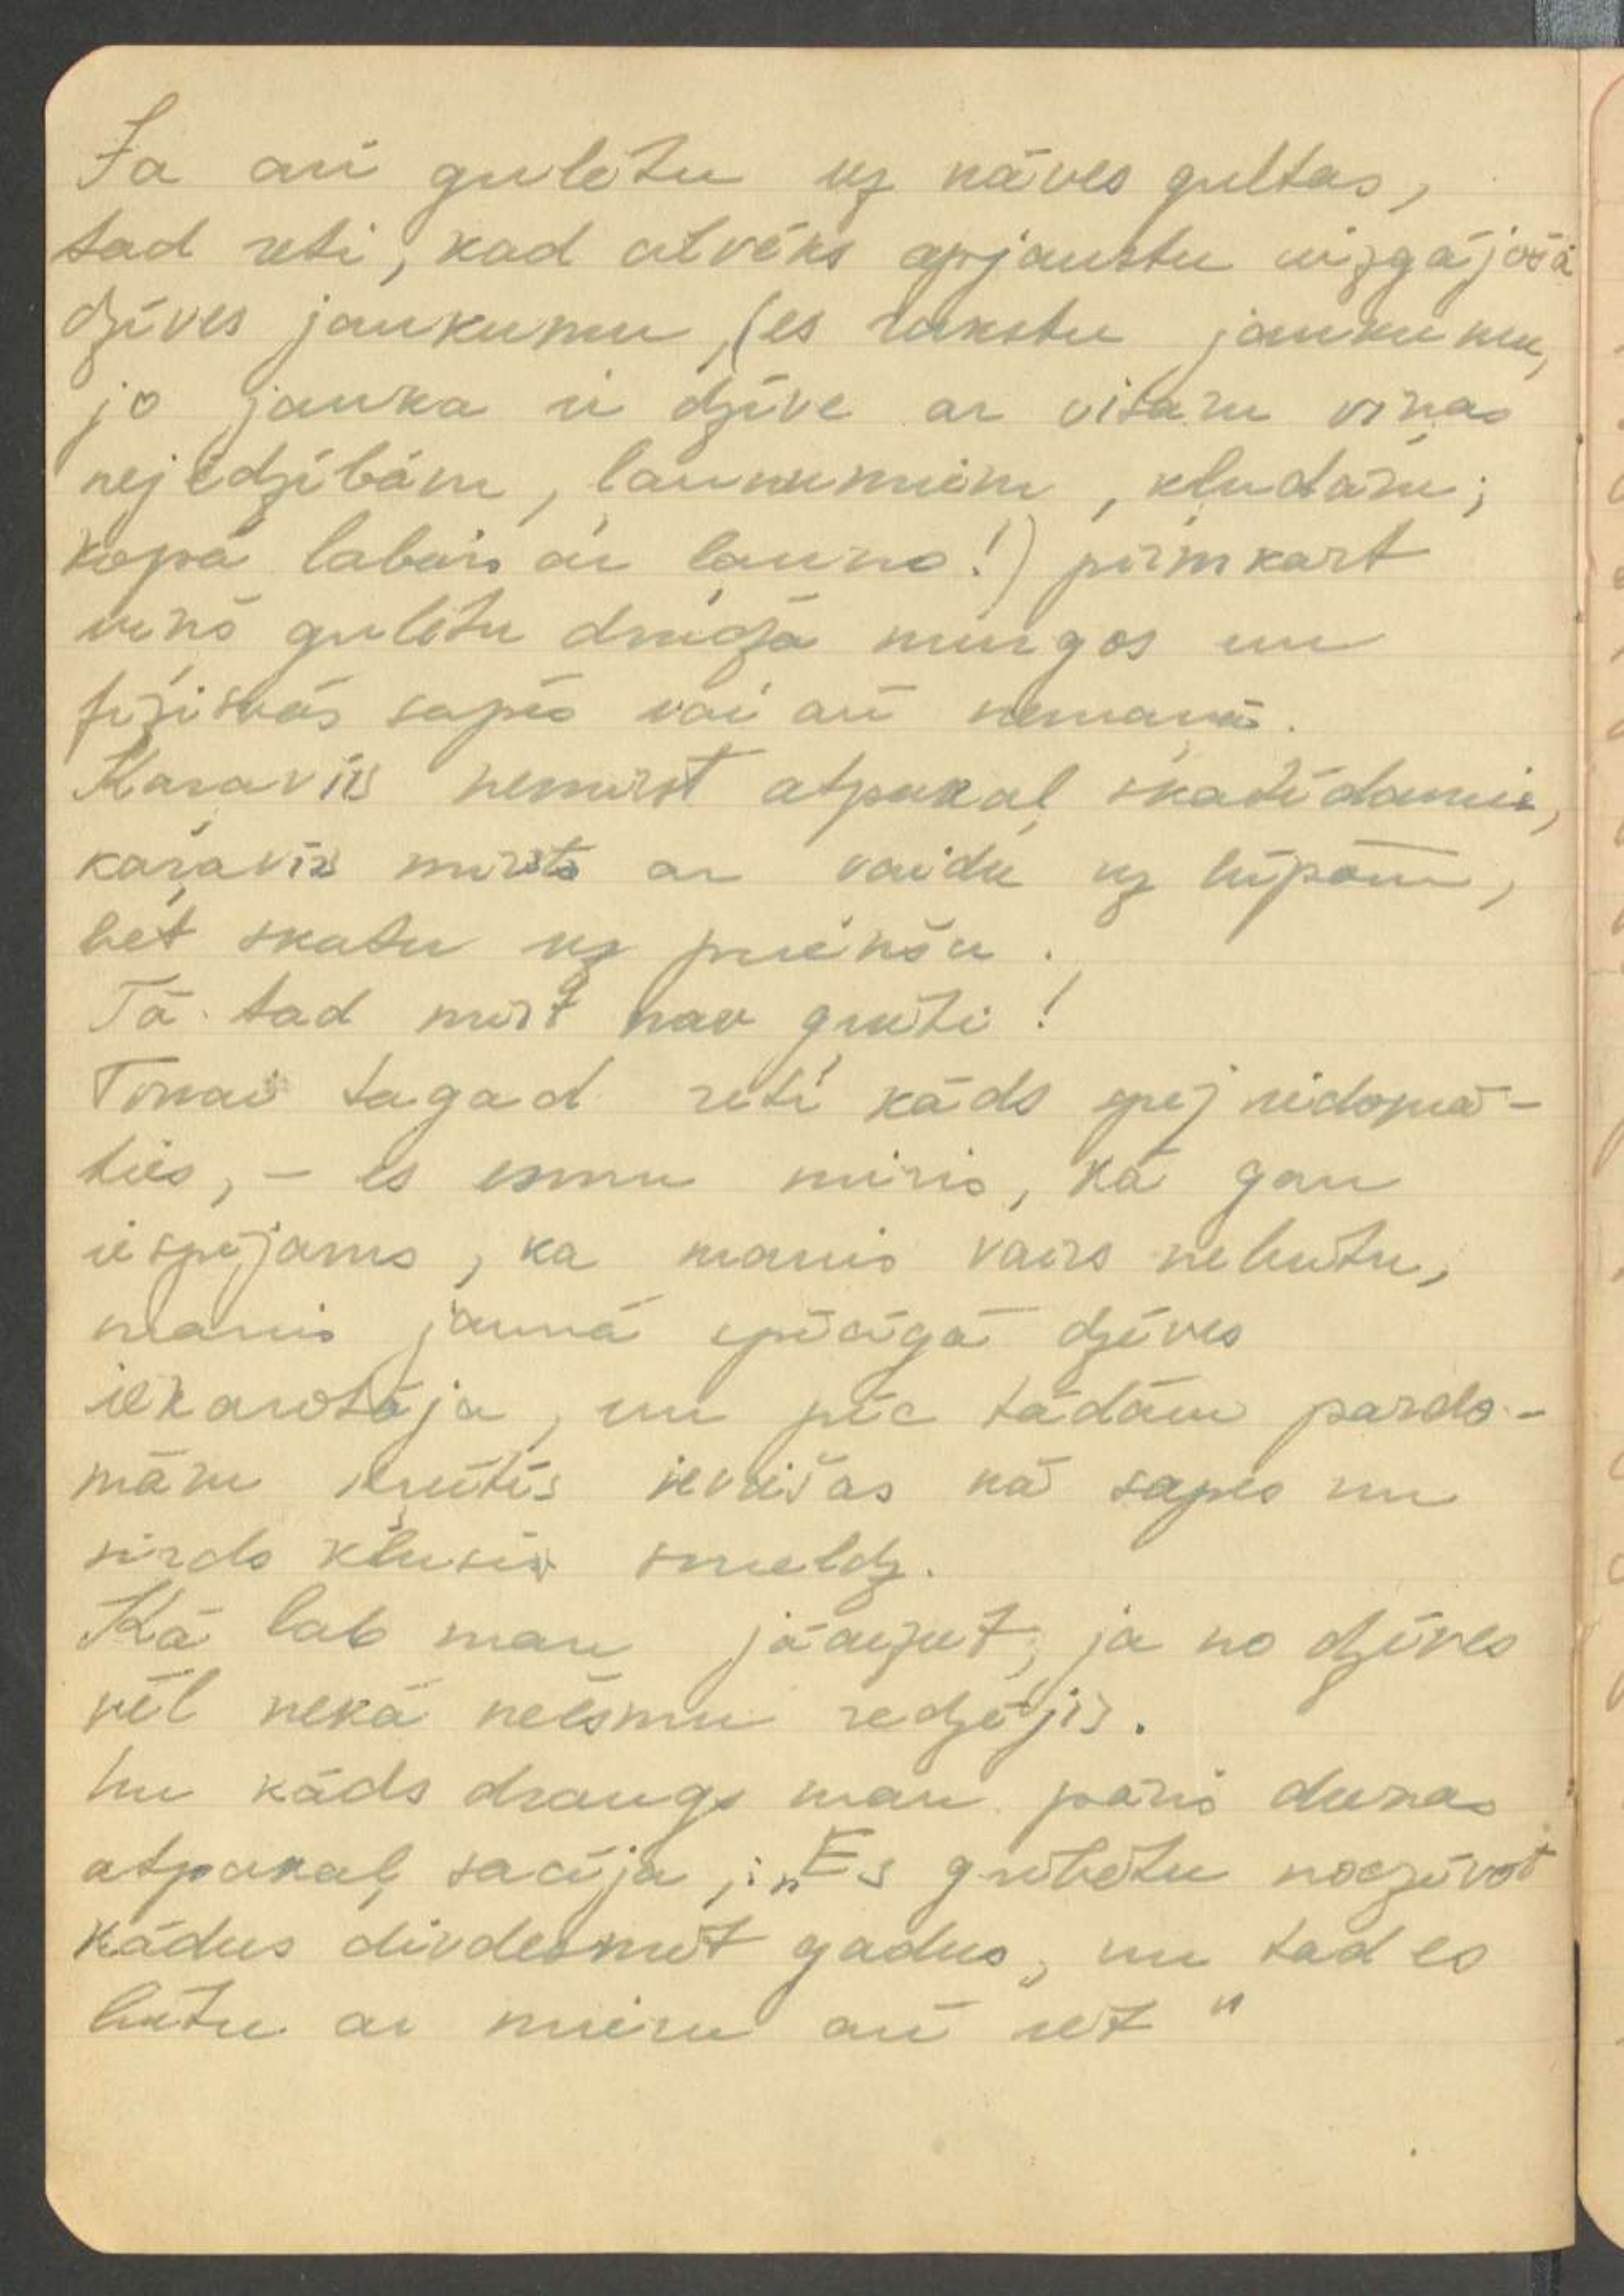 Ja arī gulētu uz nāves gultas,
tad reti, kad cilvēks apjaustu aizgājošā
dzīves jaukumu, (es rakstu jaukumu,
jo jauka ir dzīve ar visām viņas
nejēdzībām, ļaunumiem, kļudām;
kopā labais ar ļauno!) pirmkart
viņš gulētu drudža murgos un
fiziskās sapēs vai arī nemaņā.
Kaŗavīrs nemirst atpakaļ skatīdamies,
kaŗavīrs mirst ar vaidu uz lūpām,
bet skatu uz priekšu.
Tā tad mirt nav grūti!
Tomēr tagad reti kāds spēj iedomā-
ties, – es esmu miris, kā gan
iespējams, ka manis vairs nebūtu,
manis jaunā spēcīgā dzīves
iekarotāja, un pēc tādām pārdo-
mām krūtīs ievīšas kā sāpes un
sirds klusi smeldz.
Kā lab man jāaiziet, ja no dzīves
vēl nekā neesmu redzējis.
Un kāds draugs man pāris dienas
atpakaļ sacīja,: „Es gribētu nodzīvot
kādus divdesmit gadus, un tad es
būtu ar mieru arī iet"